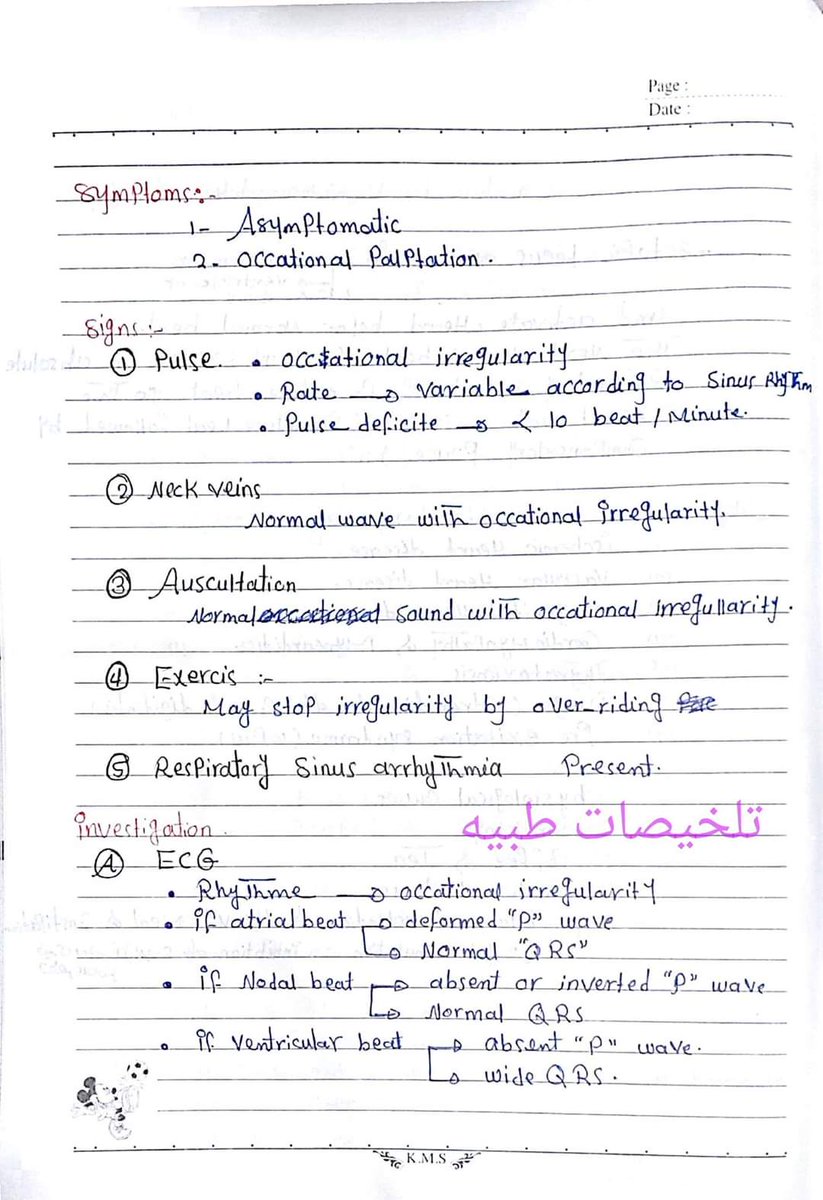 Page :
Date :
Symptoms:-
1- Asymptomatic
2- Occational Palptation.
Signs :-
① Pulse. • occational irregularity
• Rate → variable according to Sinus Rhythm
• Pulse deficite → < 10 beat / Minute.
② Neck veins
Normal wave with occational irregularity.
③ Auscultation
Normal sound with occational irregullarity.
④ Exercis :-
May stop irregularity by over-riding
⑤ Respiratory Sinus arrhythmia Present.
investigation.
تلخيصات طبيه
Ⓐ ECG
• Rhythme → occational irregularity
• if atrial beat → deformed "P" wave
→ Normal "QRS"
• if Nodal beat → absent or inverted "P" wave
→ Normal QRS
• if ventricular beat → absent "P" wave.
→ wide QRS.
K.M.S